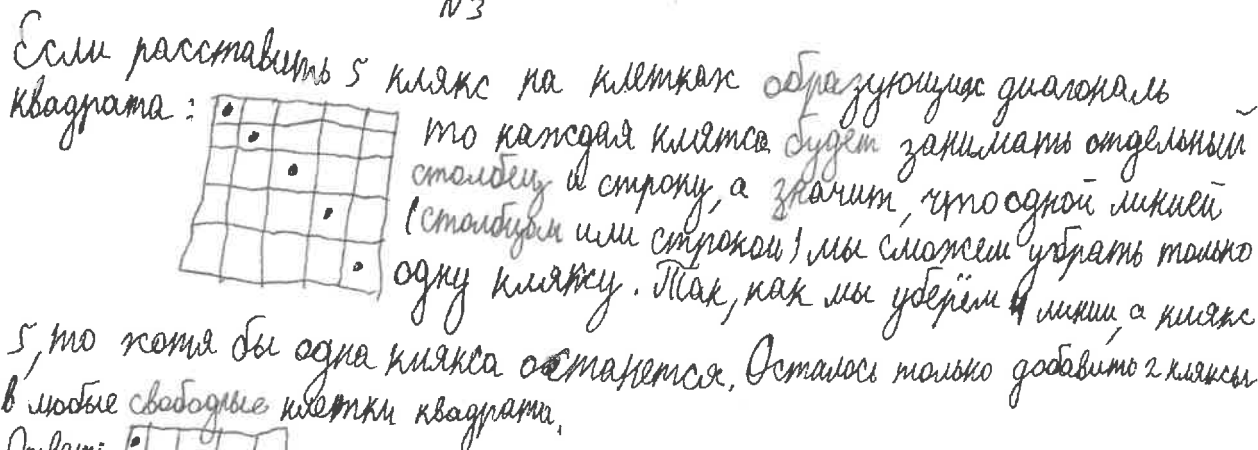 N3
Если расставить 5 клякс на клетках образующих диагональ
квадрата:
то каждая клякса будет занимать отдельный
столбец и строку, а значит, что одной линией
(столбцом или строкой) мы сможем убрать только
одну кляксу. Так, как мы уберём 4 линии, а клякс
5, то хотя бы одна клякса останется. Осталось только добавить 2 кляксы
в любые свободные клетки квадрата.
Ответ: